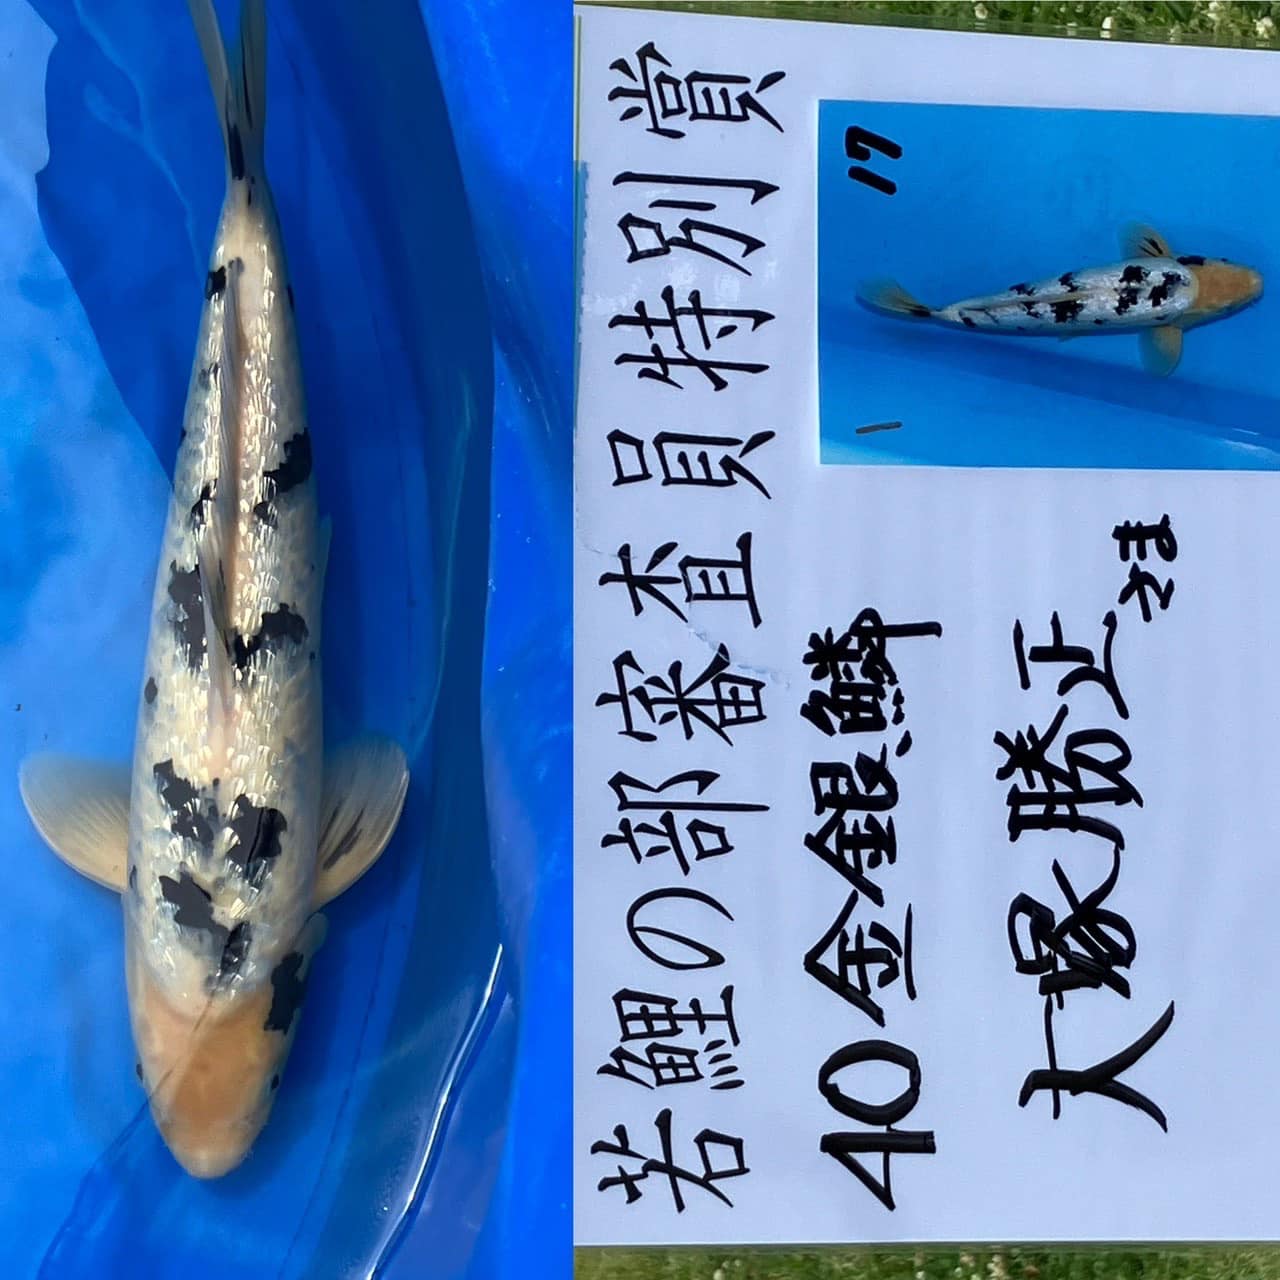 若鯉の部審査員特別賞
17
40金銀鱗
大塚勝正さま